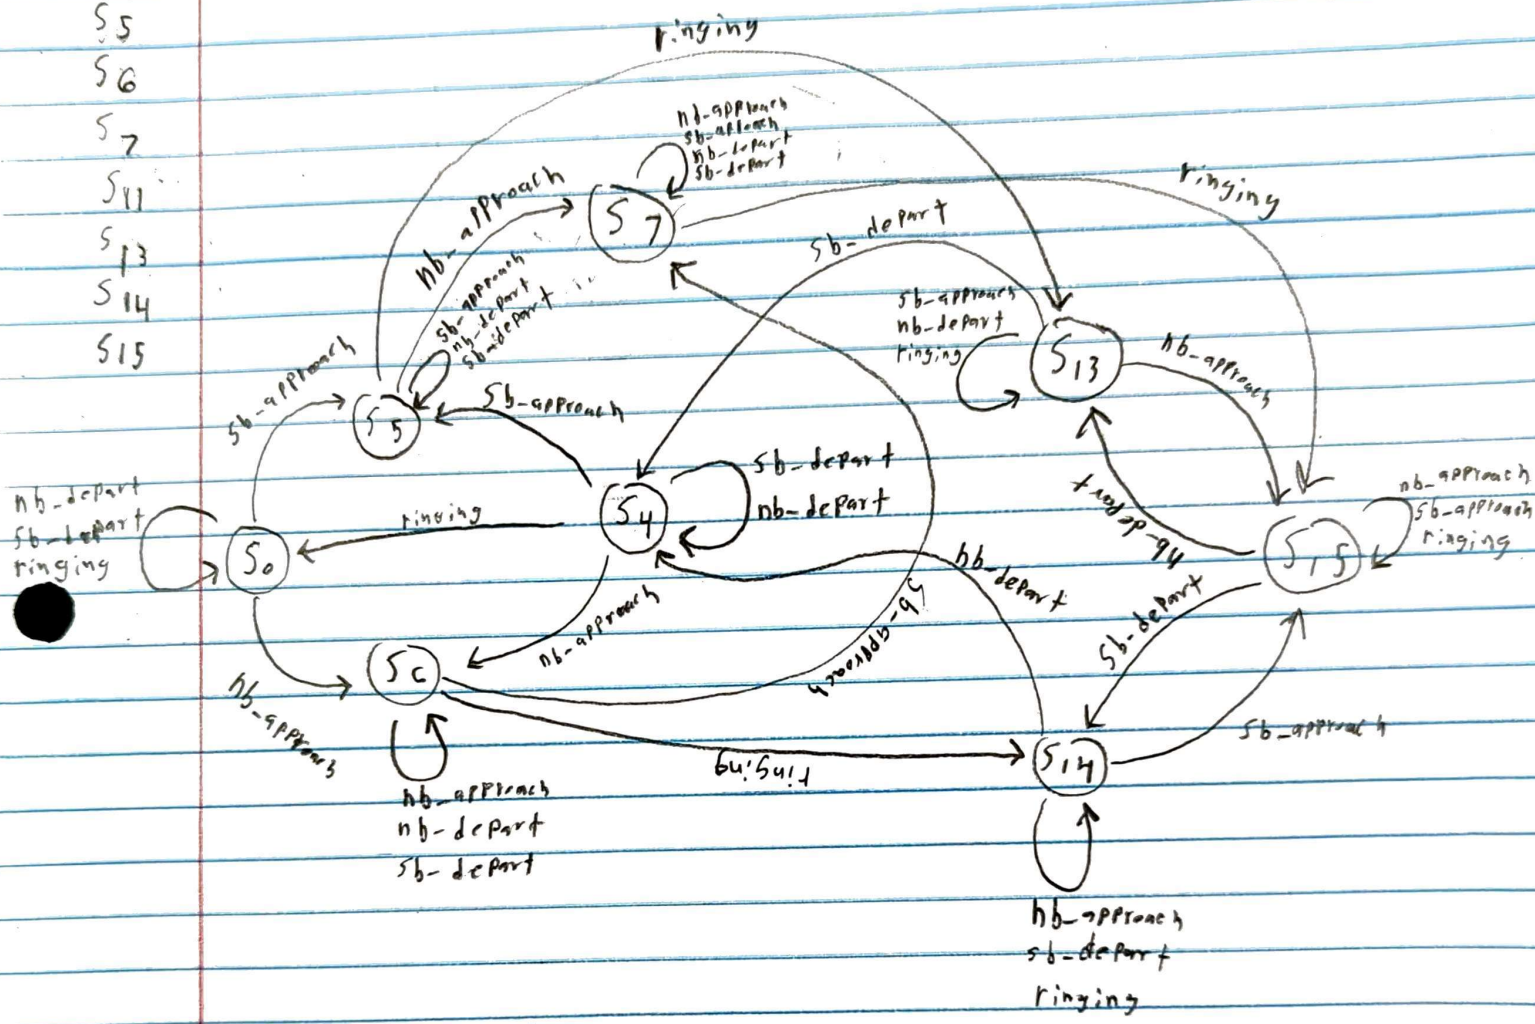 S5
S6
S7
S11
S13
S14
S15
ringing
nb-approach
sb-aproach
nb-depart
sb-depart
nb-approach
S7
ringing
sb-depart
sb-approach
nb-depart
sb-depart
sb-approach
nb-depart
ringing
S13
nb-approach
sb-approach
S5
sb-approach
sb-depart
nb-depart
nb-depart
nb-approach
sb-approach
ringing
nb-depart
sb-depart
ringing
S0
ringing
S4
S15
nb-depart
sb-depart
nb-approach
sb-approach
S6
nb-approach
ringing
S14
sb-approach
nb-approach
nb-depart
sb-depart
nb-approach
sb-depart
ringing